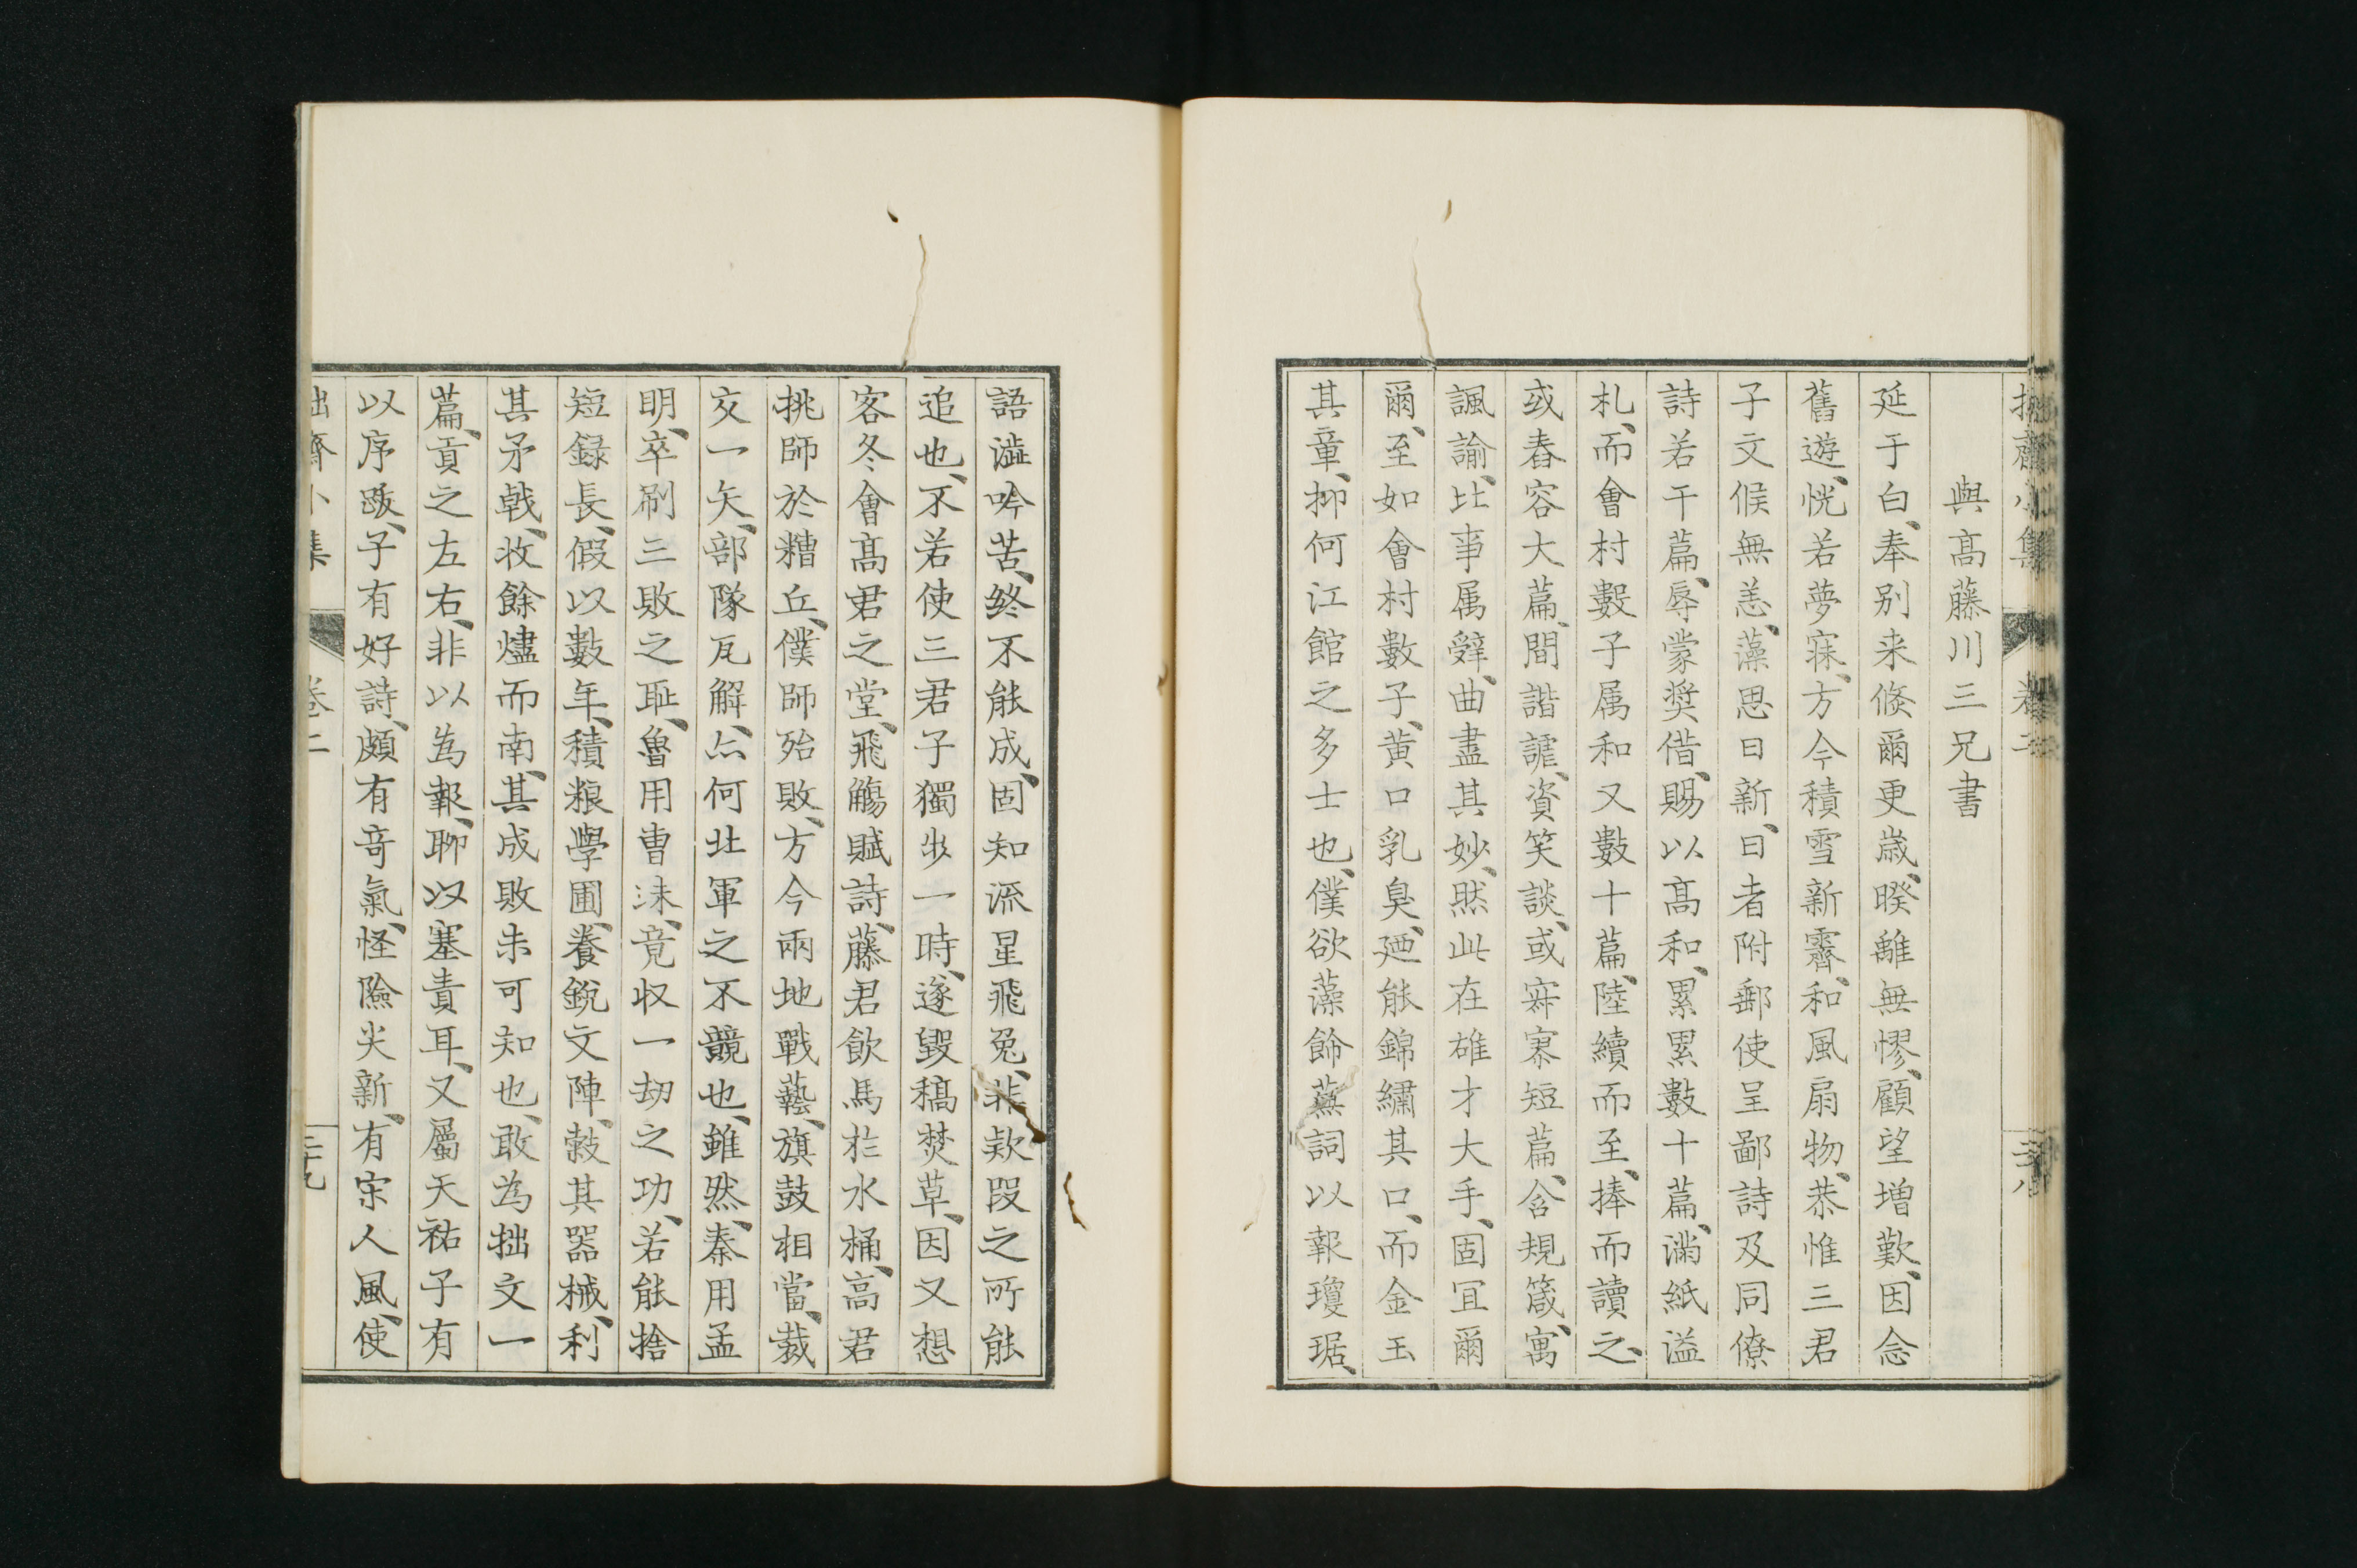 拙齋小集 卷二 三十八
與高藤川三兄書
延于白、奉別来倐爾更歲、暌離無憀、顧望増歎、因念
舊遊、恍若夢寐、方今積雪新霽、和風扇物、恭惟三君
子文候無恙、藻思日新、日者附郵使呈鄙詩及同僚
詩若干篇、辱蒙奨借、賜以髙和、累累數十篇、滿紙溢
札、而會村數子属和又數十篇、陸續而至、捧而讀之、
或舂容大篇、間諧謔、資笑談、或寂寥短篇、含規箴、寓
諷諭、比事属辭、曲盡其妙、然此在雄才大手、固冝爾
爾、至如會村數子、黄口乳臭、廼能錦繡其口、而金玉
其章、抑何江館之多士也、僕欲藻餙蕪詞以報瓊琚、
語澁吟苦、終不能成、固知流星飛兔、非欵段之所能
追也、不若使三君子獨步一時、遂毀稿焚草、因又想
客冬會髙君之堂、飛觴賦詩、藤君飲馬於水桶、高君
挑師於糟丘、僕師殆敗、方今兩地戰藝、旗鼓相當、裁
交一矢、部隊瓦解、亦何北軍之不競也、雖然、秦用孟
明、卒刷三敗之耻、魯用曹沫、竟収一劫之功、若能捨
短録長、假以數年、積粮學圃、養鋭文陣、敹其器械、利
其矛戟、收餘燼而南、其成敗未可知也、敢為拙文一
篇、貢之左右、非以為報、聊以塞責耳、又屬天祐子有
以序跋、子有好詩、頗有竒氣、怪險尖新、有宋人風、使
拙齋小集 卷二 三十九